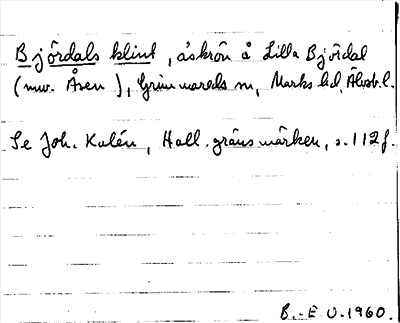 Björdals klint, åskrön å Lilla Björdal
(nuv. Åsen), Grimmareds sn, Marks hd, Älvsb. l.
Se Joh. Kalén, Hall. gränsmärken, s. 112 f.
B.-E U. 1960.